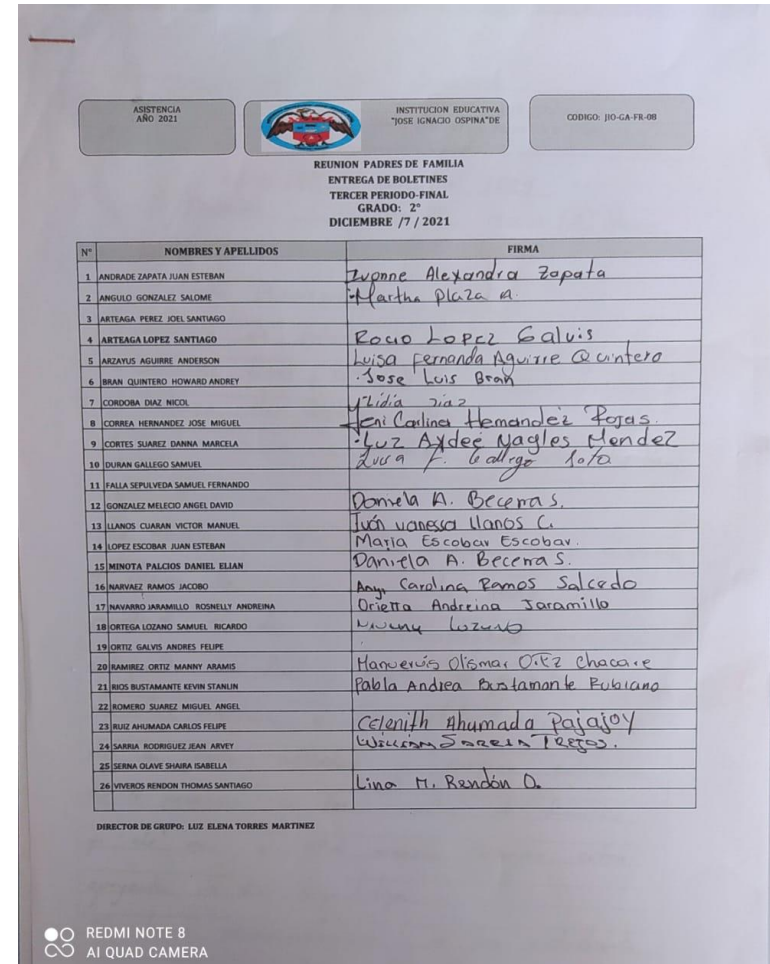 ASISTENCIA
AÑO 2021
INSTITUCION EDUCATIVA
"JOSE IGNACIO OSPINA"DE
CODIGO: JIO-GA-FR-08
REUNION PADRES DE FAMILIA
ENTREGA DE BOLETINES
TERCER PERIODO-FINAL
GRADO: 2°
DICIEMBRE /7 / 2021
N° NOMBRES Y APELLIDOS FIRMA
1 ANDRADE ZAPATA JUAN ESTEBAN Ivonne Alexandra Zapata
2 ANGULO GONZALEZ SALOME Martha Plaza A.
3 ARTEAGA PEREZ JOEL SANTIAGO
4 ARTEAGA LOPEZ SANTIAGO Rocio Lopez Galvis
5 ARZAYUS AGUIRRE ANDERSON Luisa Fernanda Aguirre Quintero
6 BRAN QUINTERO HOWARD ANDREY Jose Luis Bran
7 CORDOBA DIAZ NICOL Lidia Diaz
8 CORREA HERNANDEZ JOSE MIGUEL Hernandez Rojas.
9 CORTES SUAREZ DANNA MARCELA Luz Aydeé Nagles Mendez
10 DURAN GALLEGO SAMUEL F. Gallego Soto
11 FALLA SEPULVEDA SAMUEL FERNANDO
12 GONZALEZ MELECIO ANGEL DAVID Daniela A. Becerra S.
13 LLANOS CUARAN VICTOR MANUEL vanessa Llanos C.
14 LOPEZ ESCOBAR JUAN ESTEBAN Maria Escobar Escobar.
15 MINOTA PALCIOS DANIEL ELIAN Daniela A. Becerra S.
16 NARVAEZ RAMOS JACOBO Carolina Ramos Salcedo
17 NAVARRO JARAMILLO ROSNELLY ANDREINA Orietta Andreina Jaramillo
18 ORTEGA LOZANO SAMUEL RICARDO Lozano
19 ORTIZ GALVIS ANDRES FELIPE
20 RAMIREZ ORTIZ MANNY ARAMIS Olismar Ortz Chacare
21 RIOS BUSTAMANTE KEVIN STANLIN Pabla Andrea Bustamante Rubiano
22 ROMERO SUAREZ MIGUEL ANGEL
23 RUIZ AHUMADA CARLOS FELIPE Celenith Ahumada Pajajoy
24 SARRIA RODRIGUEZ JEAN ARVEY William Sarria Trejos.
25 SERNA OLAVE SHAIRA ISABELLA
26 VIVEROS RENDON THOMAS SANTIAGO Lina M. Rendón O.
DIRECTOR DE GRUPO: LUZ ELENA TORRES MARTINEZ
REDMI NOTE 8
AI QUAD CAMERA